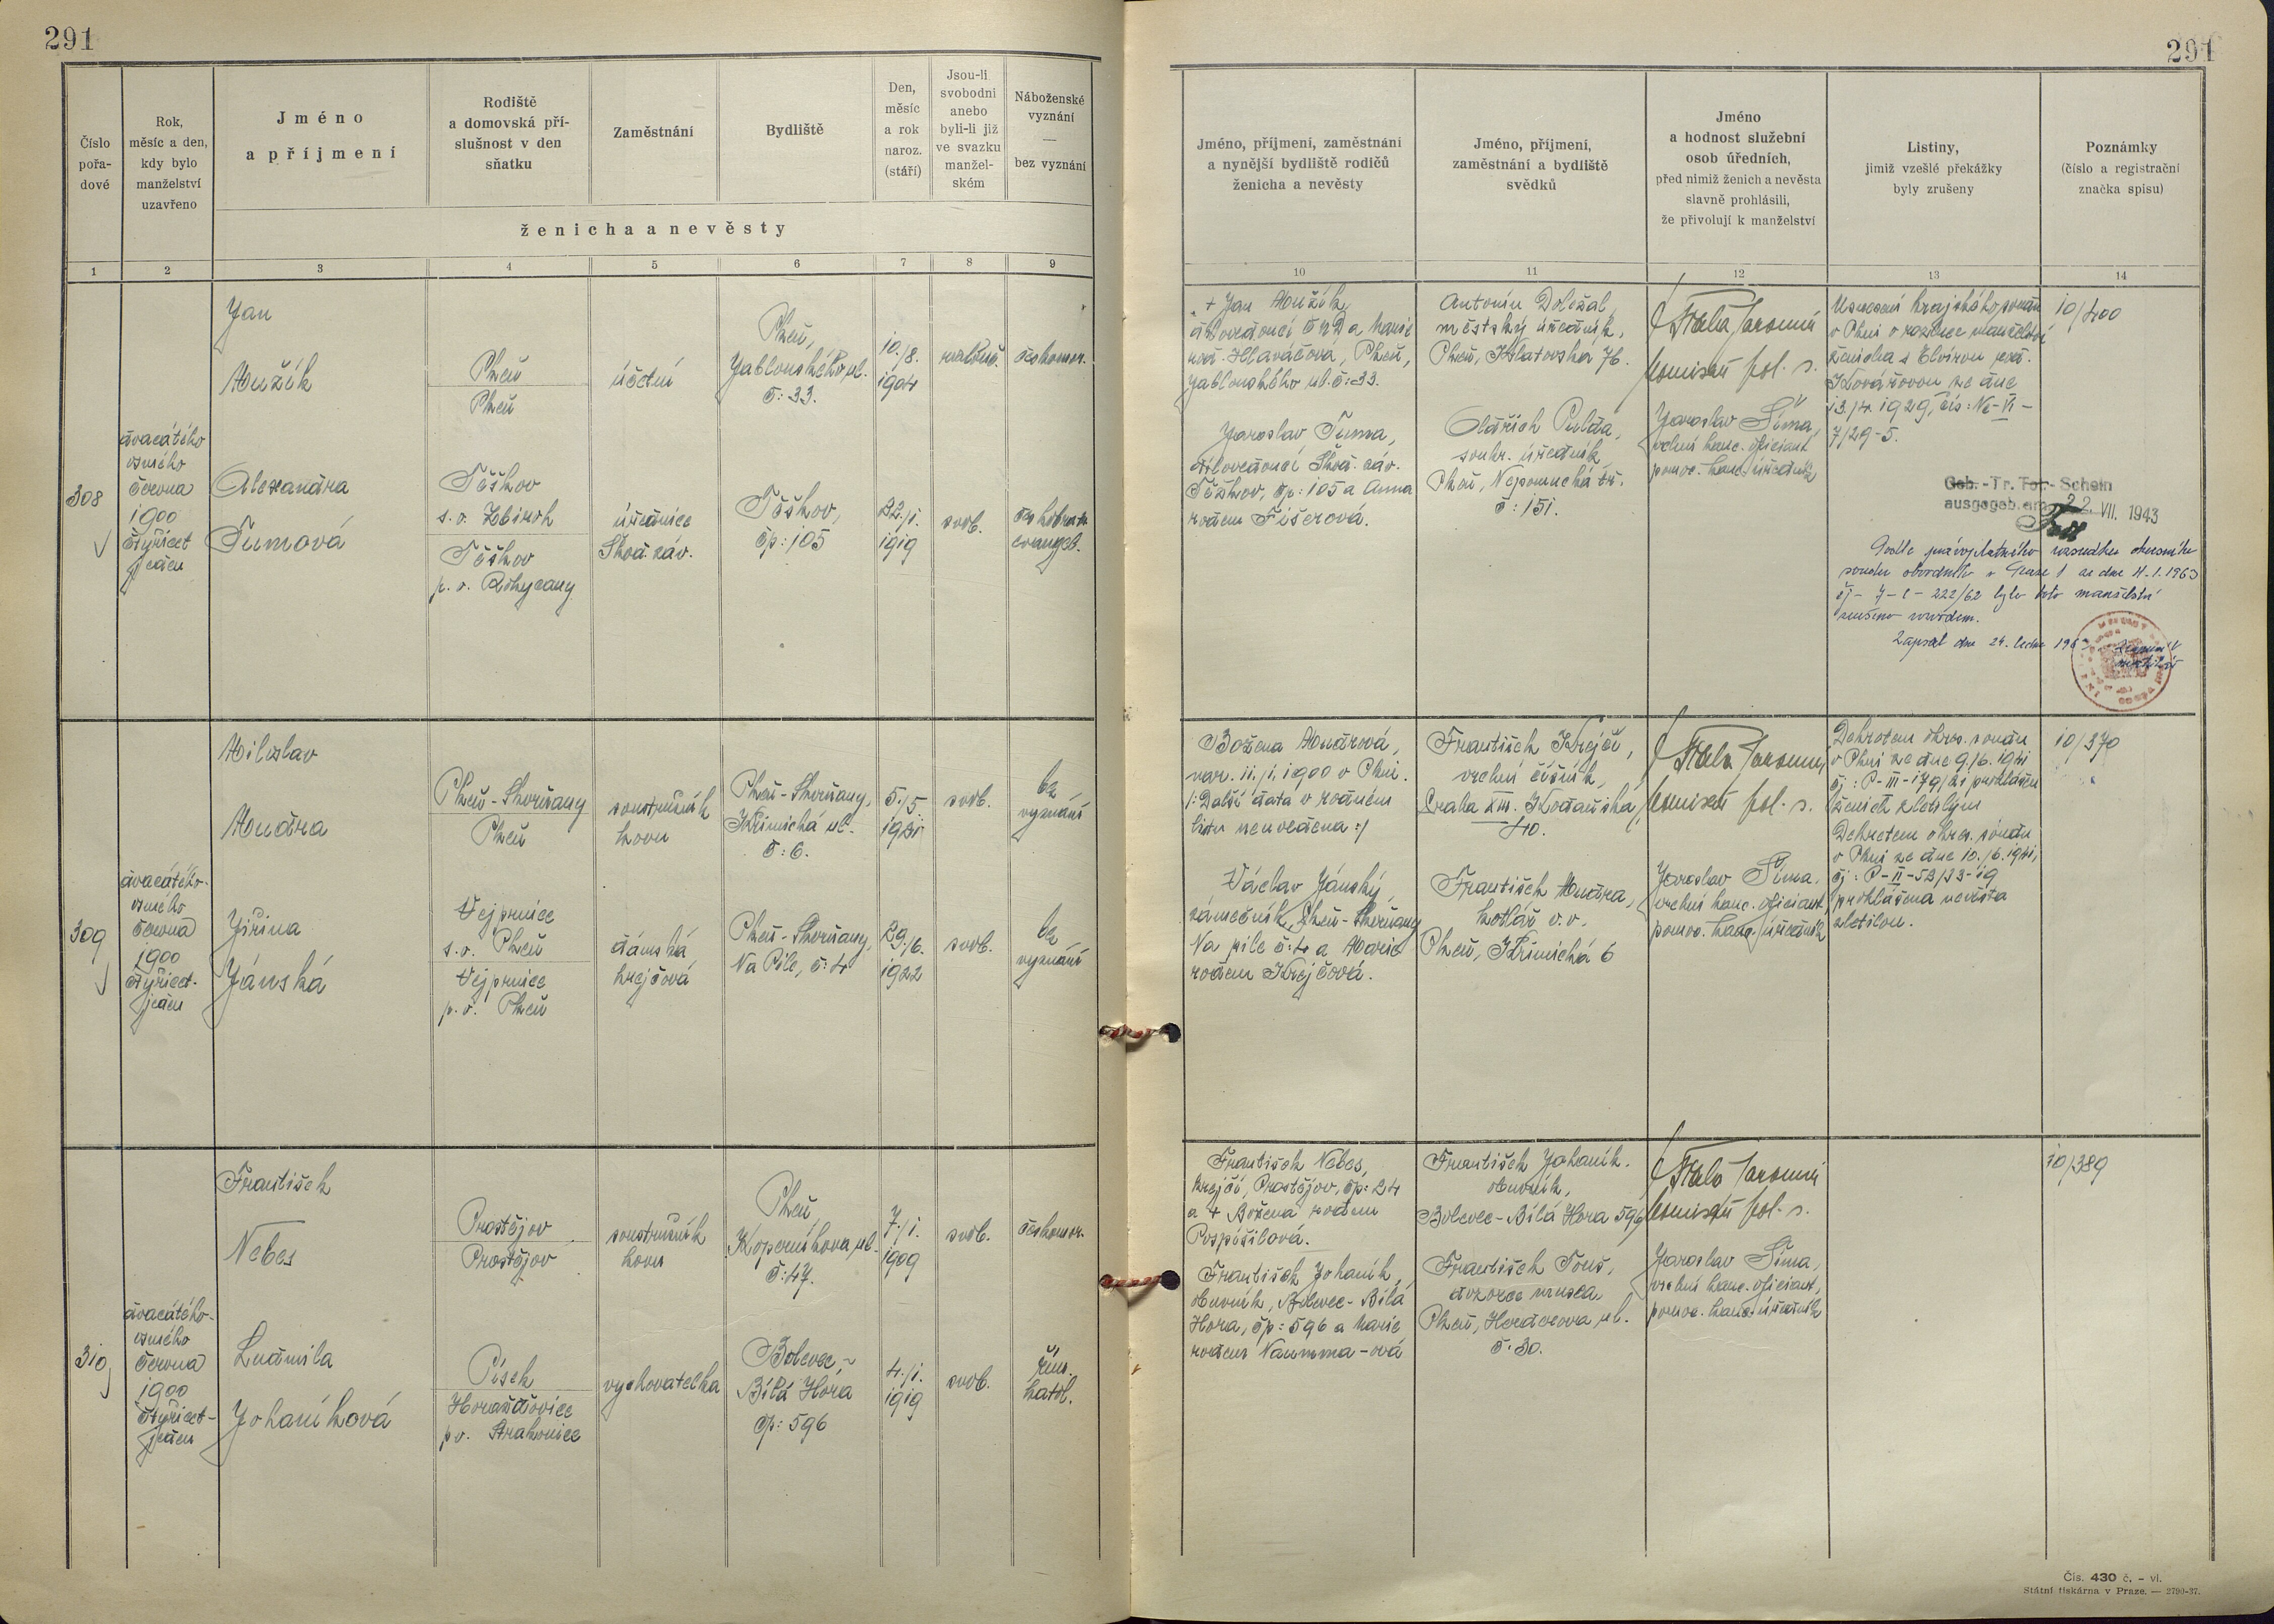 291
291
Číslo
pořa-
dové
Rok,
měsíc a den,
kdy bylo
manželství
uzavřeno
Jméno
a příjmení
Rodiště
a domovská pří-
slušnost v den
sňatku
Zaměstnání
Bydliště
Den,
měsíc
a rok
naroz.
(stáří)
Jsou-li
svobodni
anebo
byli-li již
ve svazku
manžel-
ském
Náboženské
vyznání
—
bez vyznání
ženicha a nevěsty
1 2 3 4 5 6 7 8 9
Jméno, příjmení, zaměstnání
a nynější bydliště rodičů
ženicha a nevěsty
Jméno, příjmení,
zaměstnání a bydliště
svědků
Jméno
a hodnost služební
osob úředních,
před nimiž ženich a nevěsta
slavně prohlásili,
že přivolují k manželství
Listiny,
jimiž vzešlé překážky
byly zrušeny
Poznámky
(číslo a registrační
značka spisu)
10 11 12 13 14
308
dvacátého
osmého
června
1900
čtyřicet
jeden
Jan
Mužík
Plzeň
Plzeň
účetní
Plzeň,
Jablonského ul.
č: 33.
10./8.
1904
rozluč.
českomor.
Alexandra
Tumová
Těškov
s.o. Zbiroh
Těškov
p. o. Rokycany
úřednice
Škod. záv.
Těškov,
čp: 105
22./1.
1919
svob.
českobratr.
evangel.
+ Jan Mužík,
dílovedoucí ČND a Marie
roz. Hlaváčová, Plzeň,
Jablonského ul. č: 33.
Jaroslav Tuma,
dílovedoucí Škod. záv.
Těškov, čp: 105 a Anna
rodem Fišerová.
Antonín Doležal,
městský úředník,
Plzeň, Klatovská 76.
Oldřich Pulda,
soukr. úředník,
Plzeň, Nepomucká tř.
č: 151.
komisař pol. s.
Jaroslav Šíma,
vrchní kanc. oficiant
pomoc. kanc. úředník
Usnesení krajského soudu
v Plzni o rozluce manželství
ženicha s Elvírou roz.
Kovářovou ze dne
13./4. 1929, čís: Nc-VI-
7/29-5.
10/400
Geb.-Tr.-Tot.-Schein
ausgegeb. am 22. VII. 1943
Podle právoplatného rozsudku obvodního
soudu v Praze 1 ze dne 4.1.1963
čj- 7-C-222/62 bylo toto manželství
zrušeno rozvodem.
Zapsal dne 24. ledna 196
309
dvacátého-
osmého
června
1900
čtyřicet-
jeden
Miloslav
Mudra
Plzeň-Skvrňany
Plzeň
soustružník
kovu
Plzeň-Skvrňany,
Křimická ul.
č: 6.
5./5.
1921
svob.
bez
vyznání
Jiřina
Jánská
Vejprnice
s.o. Plzeň
Vejprnice
p. o. Plzeň
dámská
krejčová
Plzeň-Skvrňany,
Na Pile, č: 4
29./6.
1922
svob.
bez
vyznání
Božena Mudrová,
nar. 11./1. 1900 v Plzni.
/: Další data v rodném
listu neuvedena :/
Václav Jánský,
zámečník, Plzeň-Skvrňany
Na pile č: 4 a Marie
rodem Krejčová.
František Krejčí,
vrchní číšník,
Praha XIII. Kodaňská
40.
František Mudra,
kotlář v.v.
Plzeň, Křimická 6
komisař pol. s.
Jaroslav Šíma,
vrchní kanc. oficiant,
pomoc. kanc. úředník
Dekretem okres. soudu
v Plzni ze dne 9./6. 1941
čj: P-III-179/21 prohlášen
ženich zletilým
Dekretem okres. soudu
v Plzni ze dne 10./6. 1941,
čj: P-II-53/33-19
prohlášena nevěsta
zletilou.
10/370
310
dvacátého-
osmého
června
1900
čtyřicet-
jeden
František
Nebes
Prostějov
Prostějov
soustružník
kovu
Plzeň
Koperníkova ul.
č: 47.
7./1.
1909
svob.
českomor.
Ludmila
Johaníková
Písek
Horažďovice
p.o. Strakonice
vychovatelka
Bolevec,-
Bílá Hora
čp: 596
4./1.
1919
svob.
řím.
katol.
František Nebes,
krejčí, Prostějov, čp: 24
a + Božena rodem
Pospíšilová.
František Johaník,
obuvník, Bolevec-Bílá
Hora, čp: 596 a Marie
rodem Naumma-ová
František Johaník.
obuvník,
Bolevec-Bílá Hora 596
František Touš,
dozorce musea,
Plzeň, Herderova ul.
č: 30.
komisař pol. s.
Jaroslav Šíma,
vrchní kanc. oficiant,
pomoc. kanc. úředník
10/389
Čís. 430 č. - vi.
Státní tiskárna v Praze. — 2790-37.